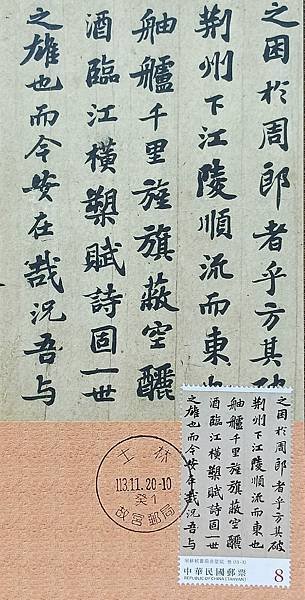 之困於周郎者乎方其破
荆州下江陵順流而東也
舳艫千里旌旗蔽空釃
酒臨江橫槊賦詩固一世
之雄也而今安在哉況吾與
士林
113.11.20-10
癸1
故宮郵局
之困於周郎者乎方其破
荆州下江陵順流而東也
舳艫千里旌旗蔽空釃
酒臨江橫槊賦詩固一世
之雄也而今安在哉況吾與
中華民國郵票
REPUBLIC OF CHINA (TAIWAN)
8